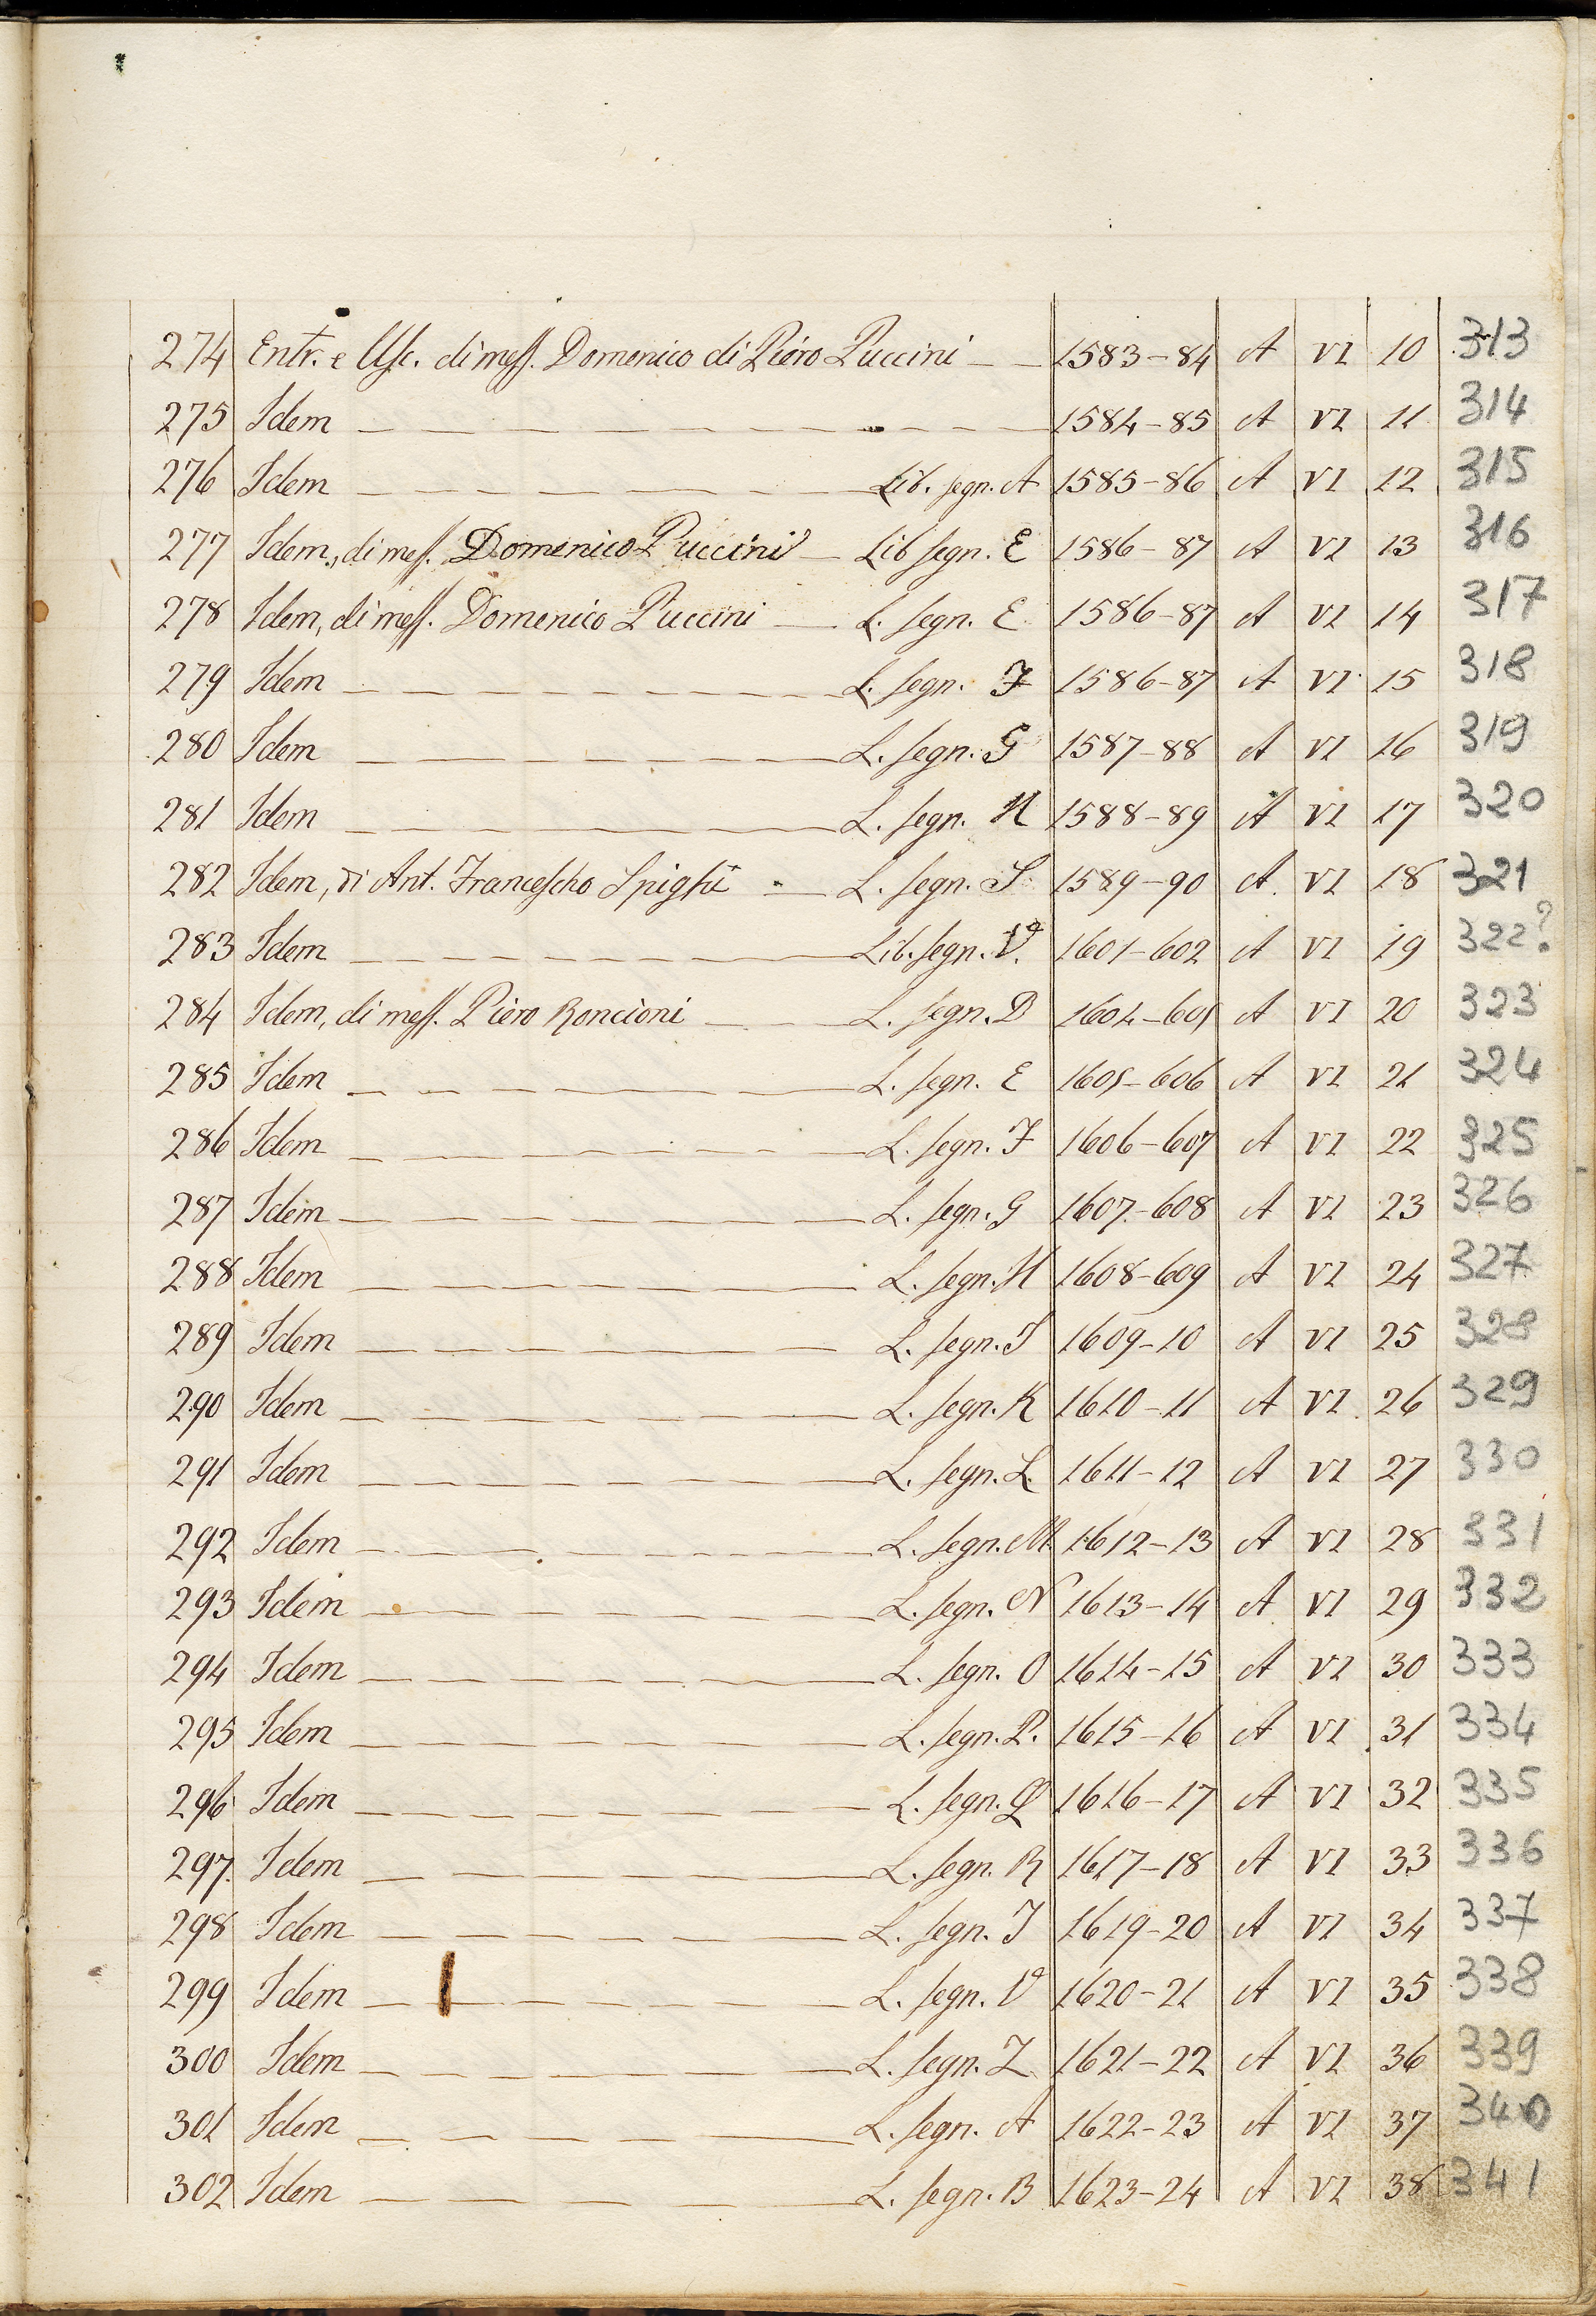 274 Entr. e Usc. di mess. Domenico di Piero Puccini 1583-84 A VI 10 313
275 Idem 1584-85 A VI 11 314
276 Idem Lib. segn. A 1585-86 A VI 12 315
277 Idem, di mess. Domenico Puccini Lib segn. E 1586-87 A VI 13 316
278 Idem, di mess. Domenico Puccini L. segn. E 1586-87 A VI 14 317
279 Idem L. segn. F 1586-87 A VI 15 318
280 Idem L. segn. G 1587-88 A VI 16 319
281 Idem L. segn. H 1588-89 A VI 17 320
282 Idem, di Ant. Francescho Spighi L. segn. I 1589-90 A VI 18 321
283 Idem Lib. segn. V. 1601-602 A VI 19 322?
284 Idem, di mess. Piero Roncioni L. segn. D 1604-605 A VI 20 323
285 Idem L. segn. E 1605-606 A VI 21 324
286 Idem L. segn. F 1606-607 A VI 22 325
287 Idem L. segn. G 1607-608 A VI 23 326
288 Idem L. segn. H 1608-609 A VI 24 327
289 Idem L. segn. I 1609-10 A VI 25 328
290 Idem L. segn. K 1610-11 A VI 26 329
291 Idem L. segn. L. 1611-12 A VI 27 330
292 Idem L. segn. M. 1612-13 A VI 28 331
293 Idem L. segn. N 1613-14 A VI 29 332
294 Idem L. segn. O 1614-15 A VI 30 333
295 Idem L. segn. P. 1615-16 A VI 31 334
296 Idem L. segn. Q 1616-17 A VI 32 335
297. Idem L. segn. R 1617-18 A VI 33 336
298 Idem L. segn. T 1619-20 A VI 34 337
299 Idem L. segn. V 1620-21 A VI 35 338
300 Idem L. segn. Z 1621-22 A VI 36 339
301 Idem L. segn. A 1622-23 A VI 37 340
302 Idem L. segn. B 1623-24 A VI 38 341